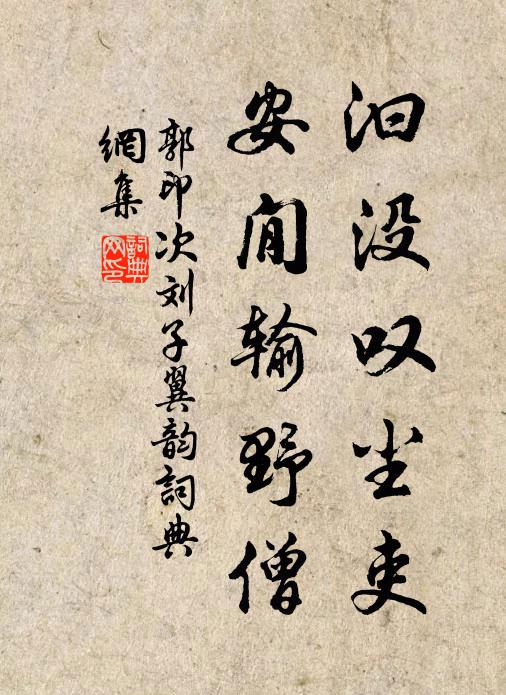 汩没叹尘吏
安闲输野僧
郭印次刘子翼韵詞典
網集
詞典
网印